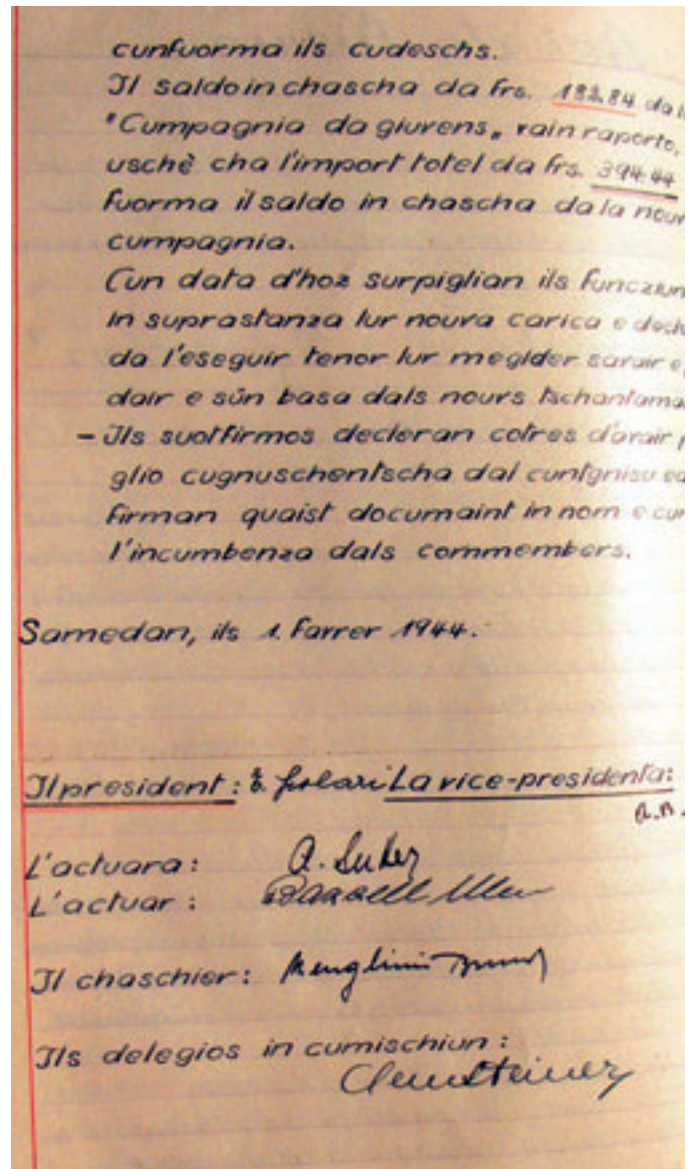 cunfuorma ils cudeschs.
Il saldo in chascha da frs. 182.84 da
"Cumpagnia da giuvens" vain raporto,
uschè cha l'import totel da frs. 394.44
fuorma il saldo in chascha da la nouv
cumpagnia.
Cun data d'hoz surpiglian ils funcziun
in suprastanza lur nouva carica e decle
da l'eseguir tenor lur megider savair e
dair e sün basa dals nouvs tschantama
- Ils suotfirmos decleran cotres d'avair p
glio cugnuschentscha dal cuntgnieu ed
firman quaist documaint in nom e cun
l'incumbenza dals commembers.
Samedan, ils 1. favrer 1944.
Il president: La vice-presidenta:
L'actuara: A. Suter
L'actuar:
Il chaschier:
Ils delegios in cumischiun:
Steiner